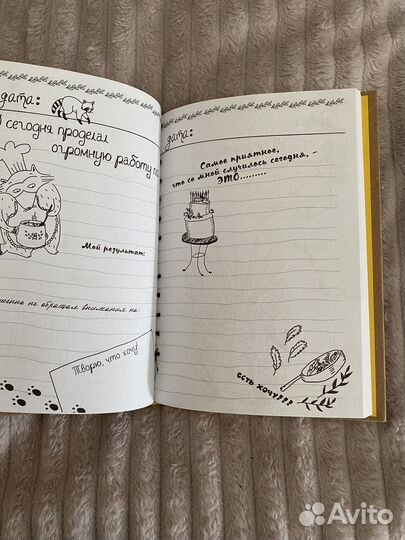 дата:
Я сегодня проделал
огромную работу по
Мой результат:
не обращал внимания на:
Творю, что хочу!
дата:
Самое приятное,
что со мной случилось сегодня, -
ЭТО.........
есть хочу???
Avito